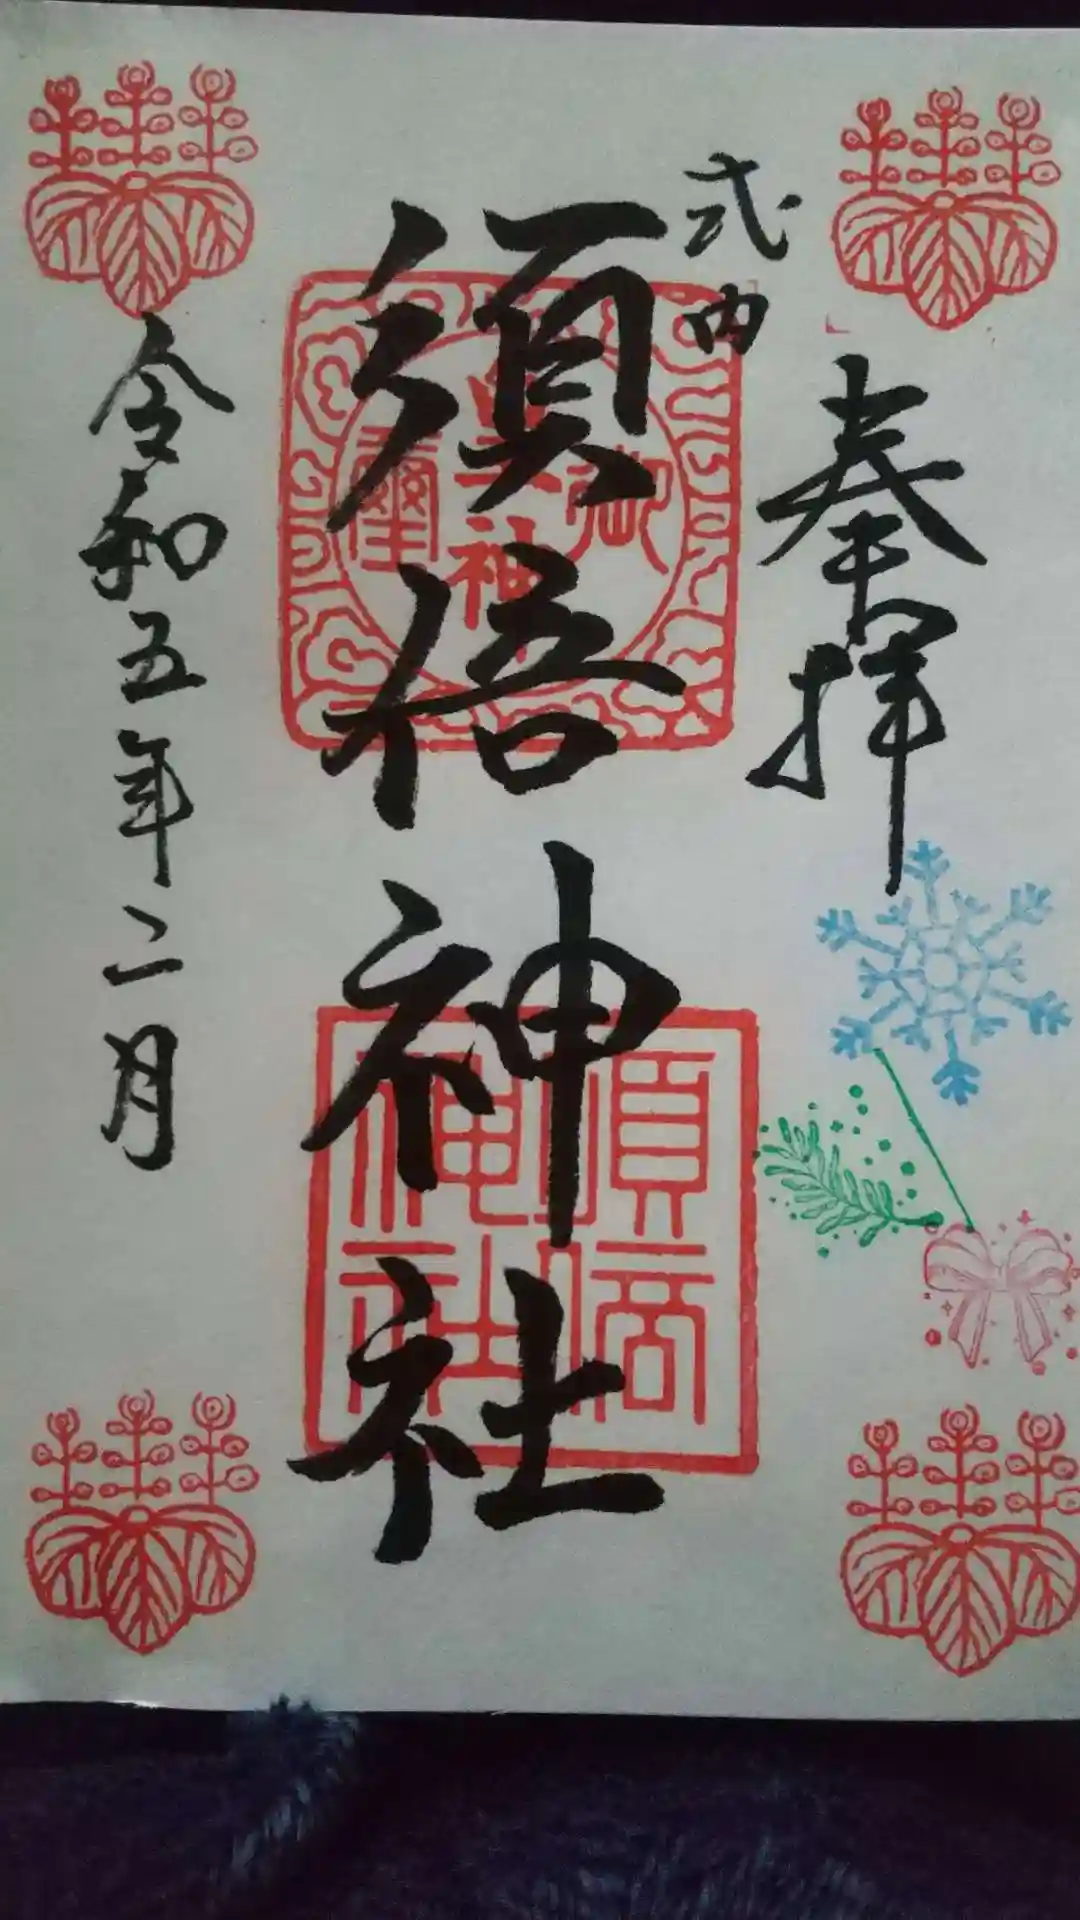 奉拝
式内
須倍神社
令和五年二月
須倍神社